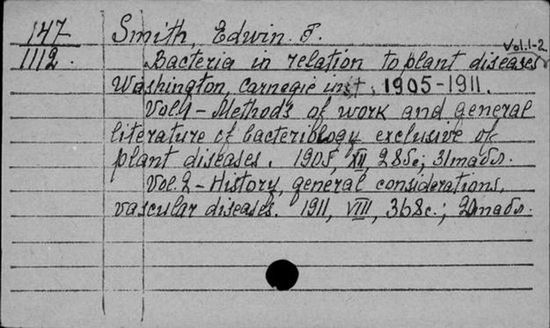 147
1112.
Smith, Edwin F.
Vol.1-2
Bacteria in relation to plant diseases
Washington, Carnegie inst, 1905-1911.
Vol.1 - Methods of work and general
literature of bacteriology exclusive of
plant diseases. 1905, XII, 285c; 31
Vol.2 - History, general considerations,
vascular diseases. 1911, VIII, 368c.; 20